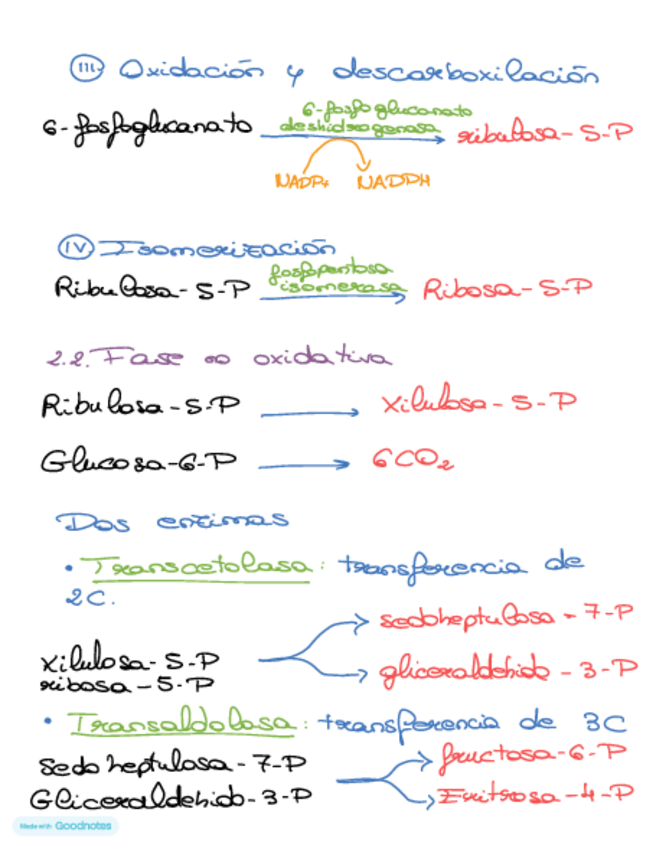 III. Oxidación y descarboxilación
6-fosfoglucanato 6-fosfogluconato deshidrogenasa ribulosa-5-P
NADP+ NADPH
IV Isomerización
Ribulosa-5-P fosfopentosa isomerasa Ribosa-5-P
2.2. Fase no oxidativa
Ribulosa-5-P Xilulosa-5-P
Glucosa-6-P 6CO2
Dos enzimas
• Transcetolasa: transferencia de
2C.
sedoheptulosa-7-P
xilulosa-5-P
ribosa-5-P
gliceraldehido-3-P
• Transaldolasa: transferencia de 3C
Sedoheptulosa-7-P fructosa-6-P
Gliceraldehido-3-P Eritrosa-4-P
Made with Goodnotes